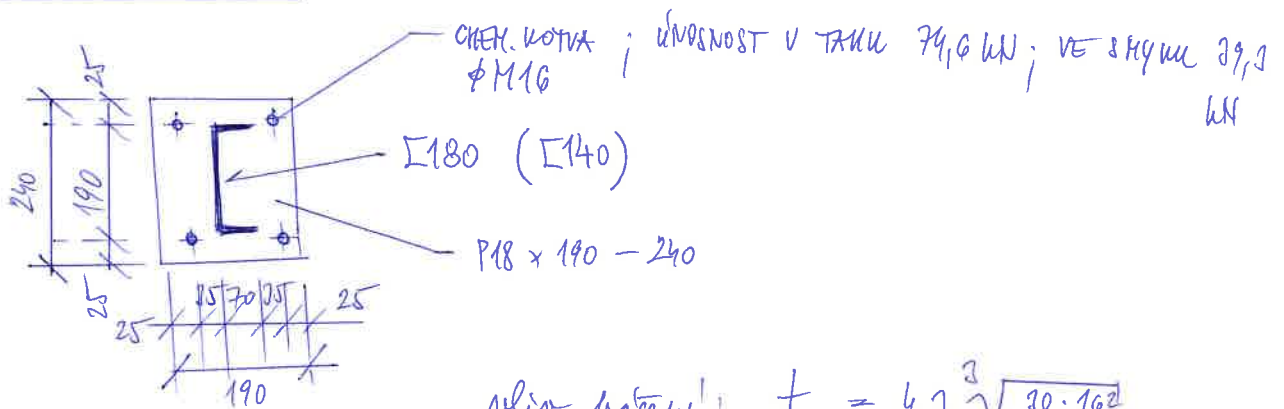 CHEM. KOTVA ; ÚNOSNOST V TAHU 74,6 kN ; VE SMYKU 39,3 kN
ϕM16
[180 ([140)
P18 x 190 - 240
25
240
190
25
25 35 70 35 25
190
t = 4,3 ∛ 30 · 16²